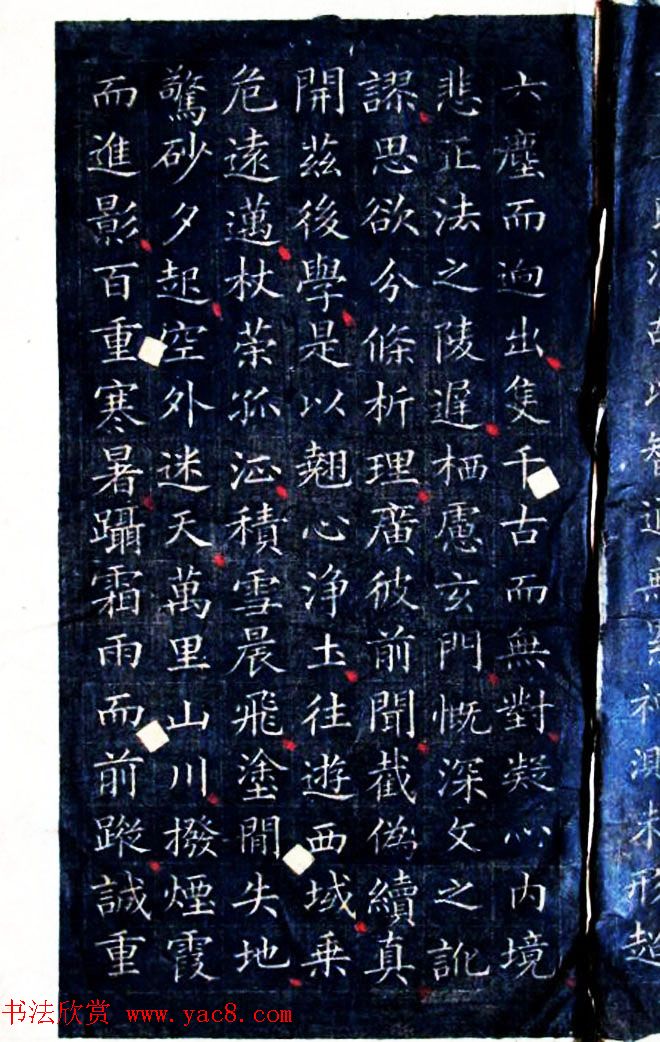 故以智通無累神測未形超
六塵而迥出隻千古而無對凝心內境
悲正法之陵遲栖慮玄門慨深文之訛
謬思欲分條析理廣彼前聞截偽續真
開茲後學是以翹心淨土往遊西域乘
危遠邁杖策孤征積雪晨飛塗間失地
驚砂夕起空外迷天萬里山川撥煙霞
而進影百重寒暑躡霜雨而前蹤誠重
书法欣赏 www.yac8.com